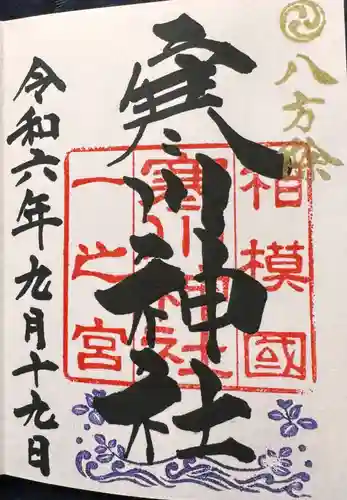 八方除
寒川神社
相模國
寒川神社
一之宮
令和六年九月十九日